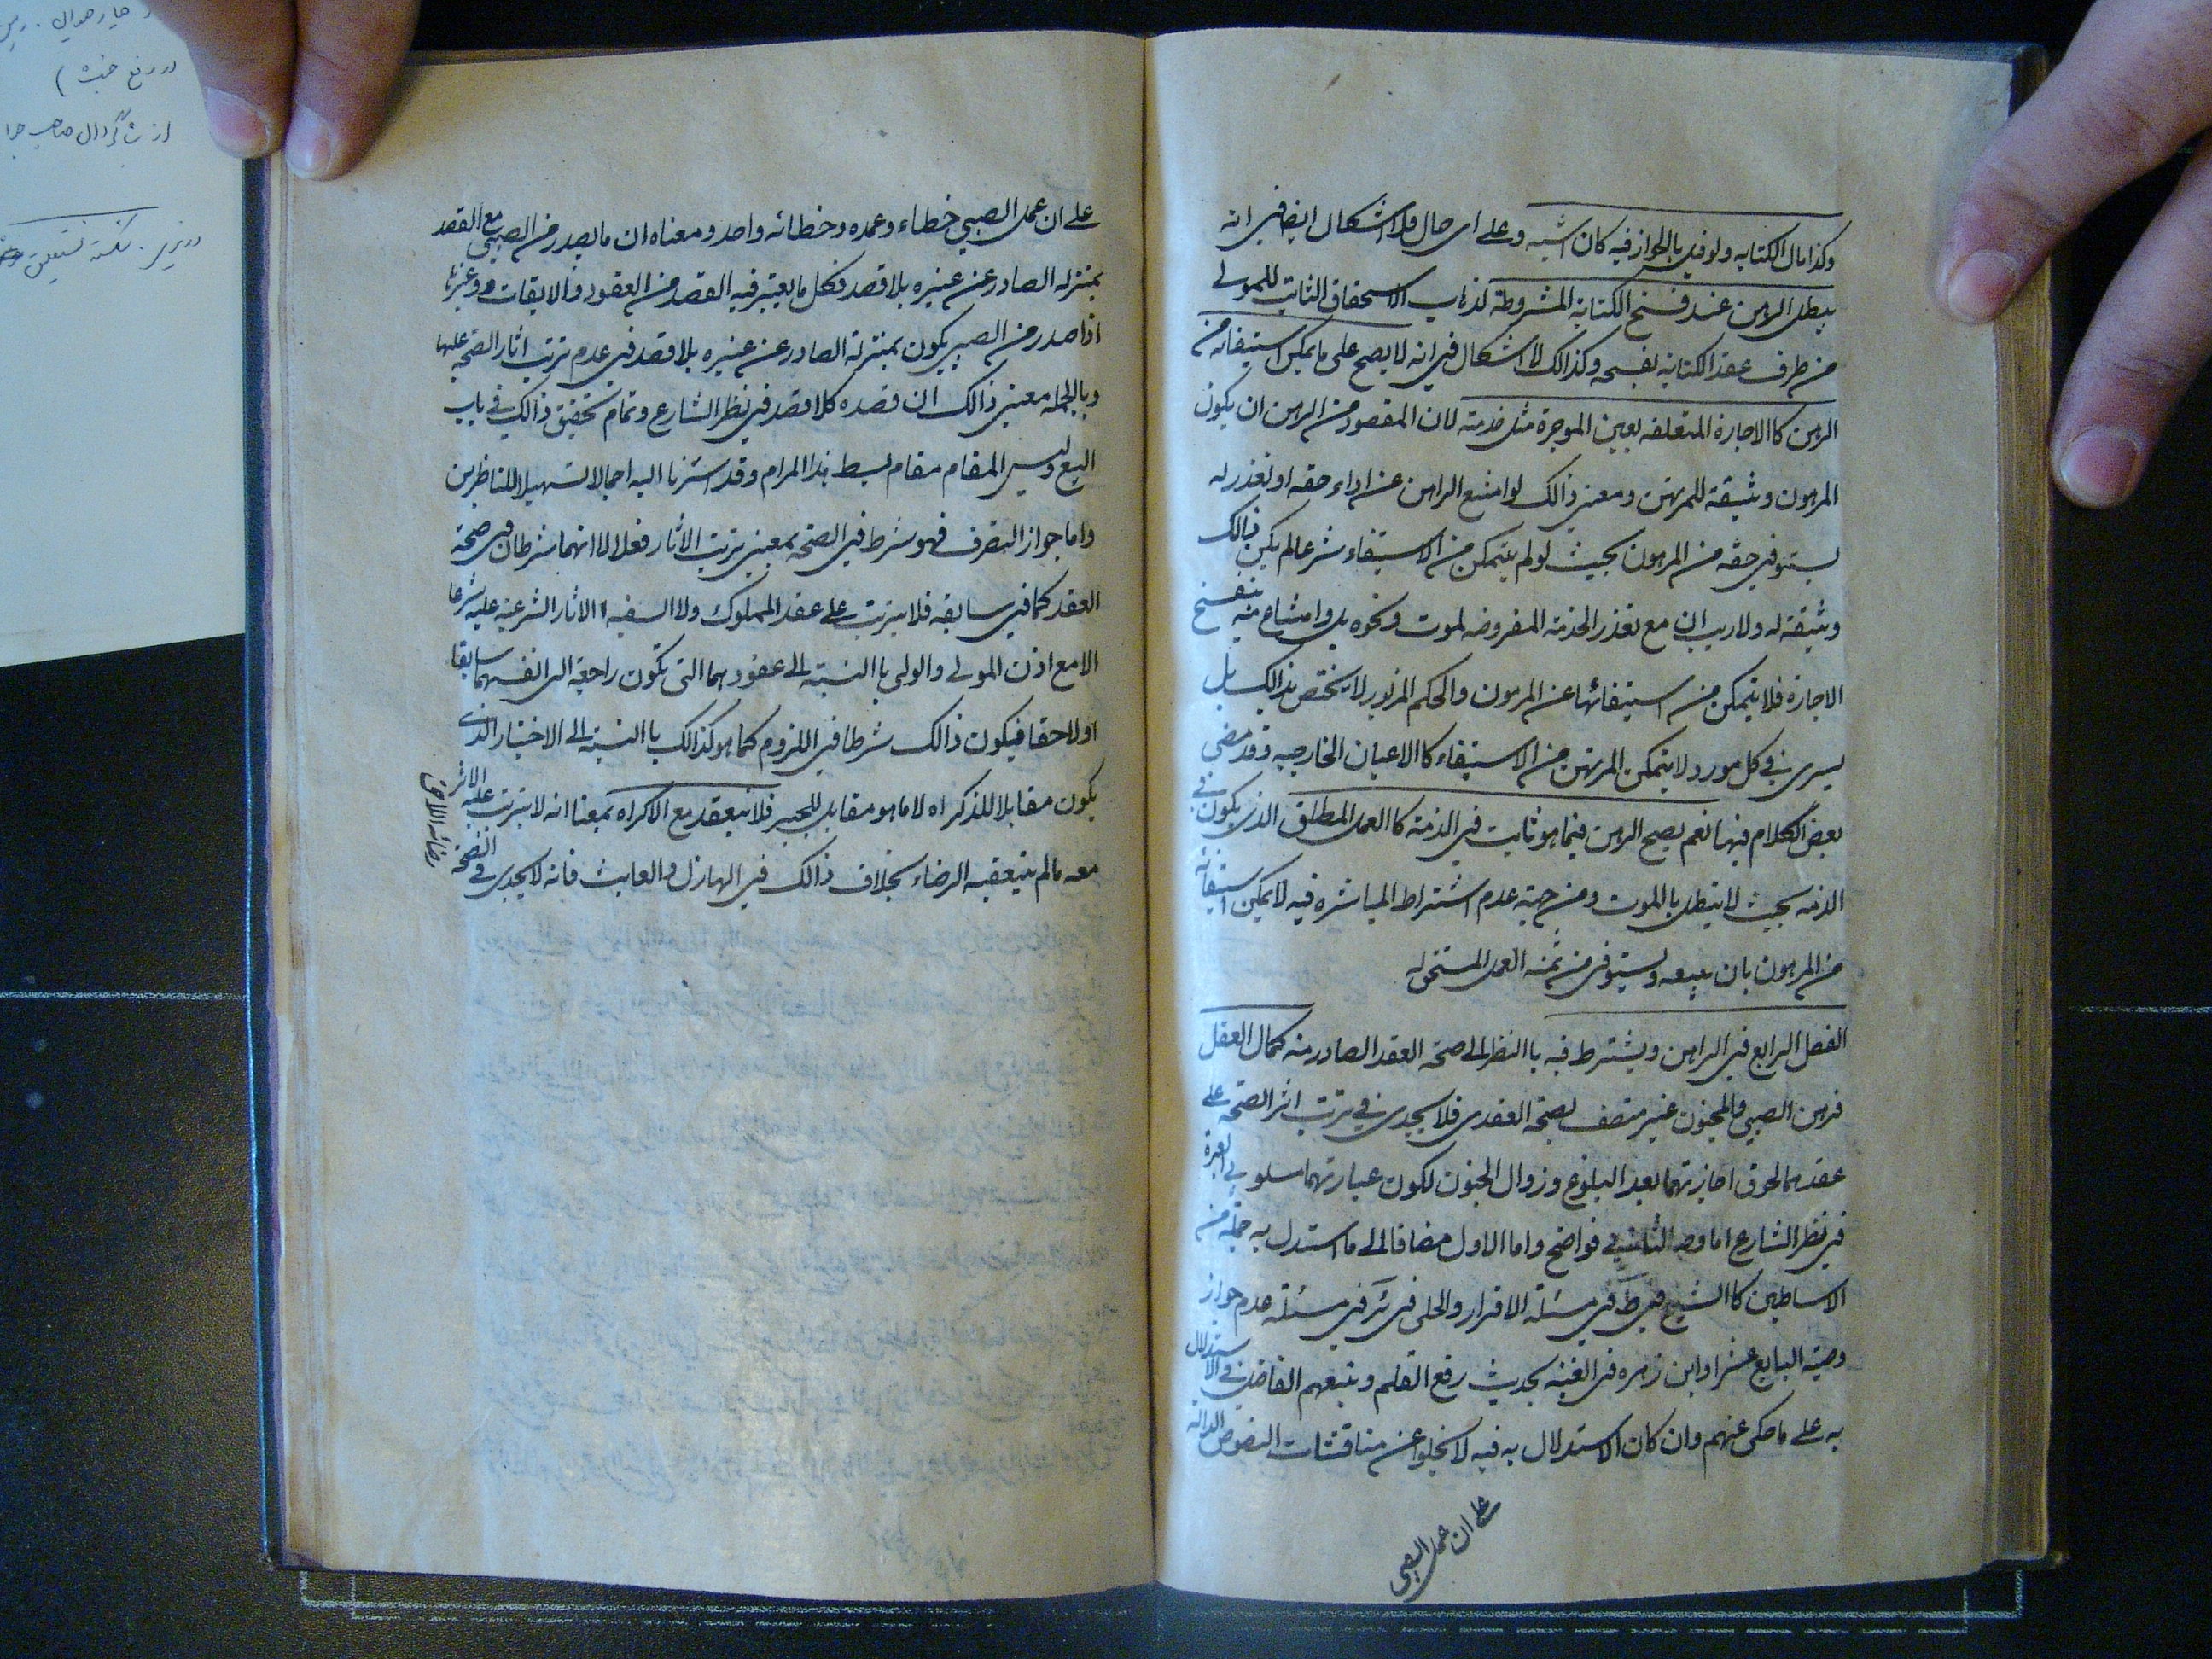 وكذا مال الكتابه ولو قيل بالجواز فيه كان اشبه وعلى اى حال فلا اشكال ايضا فى انه
يبطل الرهن عند فسخ الكتابة المشروطة لذهاب الاستحقاق الثابت للمولى
من طرف عقد الكتابه بفسخه وكذالك لا اشكال فى انه لا يصح على ما يمكن استيفائه من
الرهن كاالاجارة المتعلقه بعين الموجرة مثل خدمته لان المقصود من الرهن ان يكون
المرهون وثيقة للمرتهن ومعنى ذالك لو امتنع الراهن عن اداء حقه او تعذر له
يستوفى حقه من المرهون بحيث لو لم يتمكن من الاستيفاء شرعا لم يكن ذالك
وثيقة له ولا ريب ان مع تعذر الخدمة المفروضه لموت ونحوه بل وامتناع منه ينفسخ
الاجارة فلا يتمكن من استيفائها عن المرهون والحكم المزبور لا يختص بذالك بل
يسرى فى كل مورد لا يتمكن المرتهن من الاستيفاء كاالاعيان الخارجيه وقد مضى
بعض الكلام فيها نعم يصح الرهن فيما هو ثابت فى الذمة كاالعمل المطلق الذى يكون فى
الذمه بحيث لا يبطل باالموت ومن جهة عدم اشتراط المباشره فيه لا يمكن استيفائه
من المرهون بان يبيعه ويستوفى من ثمنه العمل المستحق له
الفصل الرابع فى الراهن ويشترط فيه باالنظر الى صحة العقد الصادر منه كمال العقل
فرهن الصبى والمجنون غير متصف بصحة العقدى فلا يجدى فى ترتب اثر الصحه على
عقدهما لحوق اجازتهما بعد البلوغ وزوال الجنون لكون عبارتهما مسلوبى العبرة
فى نظر الشارع اما وجه الثانى فواضح واما الاول مضافا الى ما استدل به جملة من
الاساطين كاالشيخ فى ط فى مسئلة الاقرار والحلى فى ئر فى مسئله عدم جواز
وصية البايع عشرا وابن زهره فى الغنيه بحديث رفع القلم وتبعهم الفاضل فى الاستدلال
به على ما حكى عنهم وان كان الاستدلال به فيه لا يخلوا عن مناقشات النصوص الدالة
على ان عمل الصبى
على ان عمل الصبى خطاء وعمده وخطائه واحد ومعناه ان ما يصدر من الصبى مع القصد
بمنزله الصادر عن غيره بلا قصد فكل ما يعتبر فيه القصد من العقود والايقات وغيرها
اذا صدر من الصبى يكون بمنزلة الصادر عن غيره بلا قصد فى عدم ترتب اثار الصحه عليها
وبالجمله معنى ذالك ان قصده كلا قصد فى نظر الشارع وتمام تحقيق ذالك فى باب
البيع وليس المقام مقام بسط هذا المرام وقد اشرنا اليه اجمالا تسهيلا للناظرين
واما جواز التصرف فهو شرط فى الصحه بمعنى ترتب الاثار فعلا لا انهما شرطان فى صحة
العقد كما فى سابقه فلا يترتب على عقد المملوك ولا السفيه الاثار الشرعيه عليه شرعا
الا مع اذن المولى والولى باالنسبة الى عقودهما التى تكون راجعة الى انفسهما سابقا
او لاحقا فيكون ذالك شرطا فى اللزوم كما هو كذالك باالنسبة الى الاختيار الذى
يكون مقابلا للذكراه لا ما هو مقابل للجبر فلا ينعقد مع الاكراه بمعنا انه لا يترتب عليه الاثر
معه ما لم يتعقبه الرضاء بخلاف ذالك فى الهازل والعابث فانه لا يجدى فى الصحة